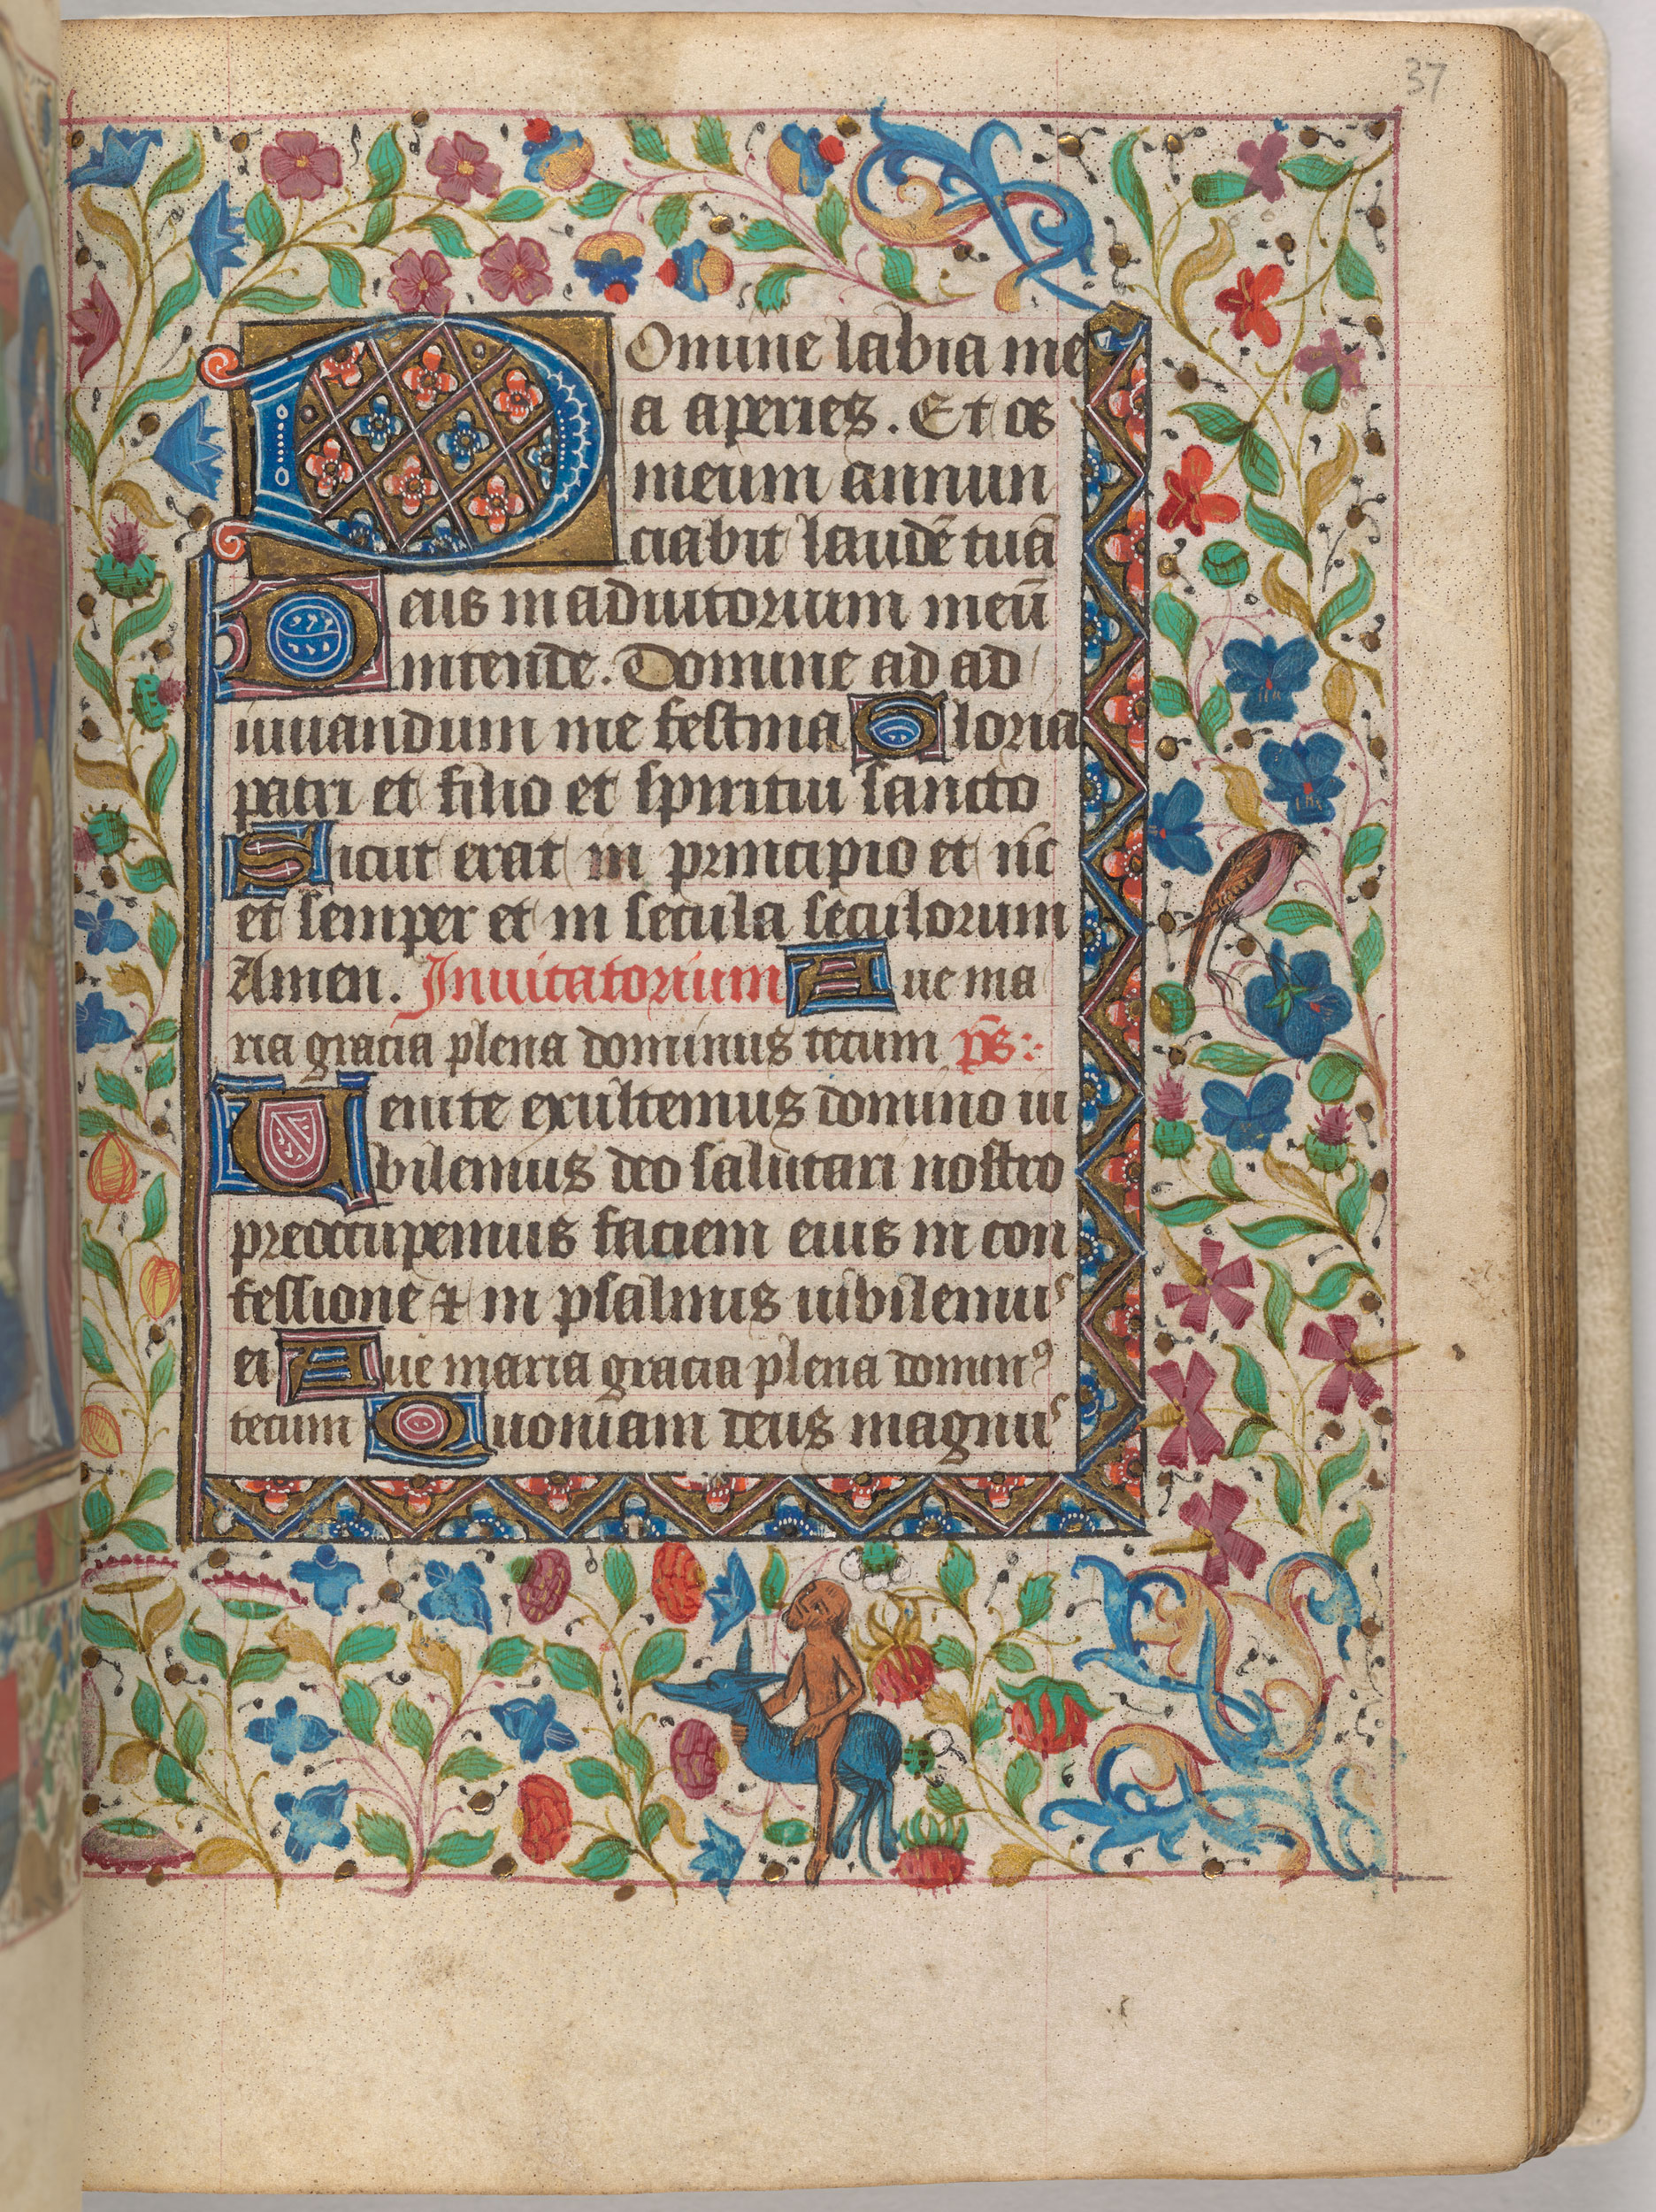 37
Domine labia me
a aperies. Et os
meum annun
ciabit laudē tuā
Deus in adiutorium meū
intende. Domine ad ad
iuuandum me festina Gloria
patri et filio et spiritui sancto
Sicut erat in principio et nc̄
et semper et in secula seculorum
Amen. Inuitatorium Aue ma
ria gracia plena dominus tecum p̄s:
Uenite exultemus domino iu
bilemus deo salutari nostro
preoccupemus faciem eius in con
fessione ⁊ in psalmis iubilemus
ei Aue maria gracia plena dominꝰ
tecum Quoniam deus magnus